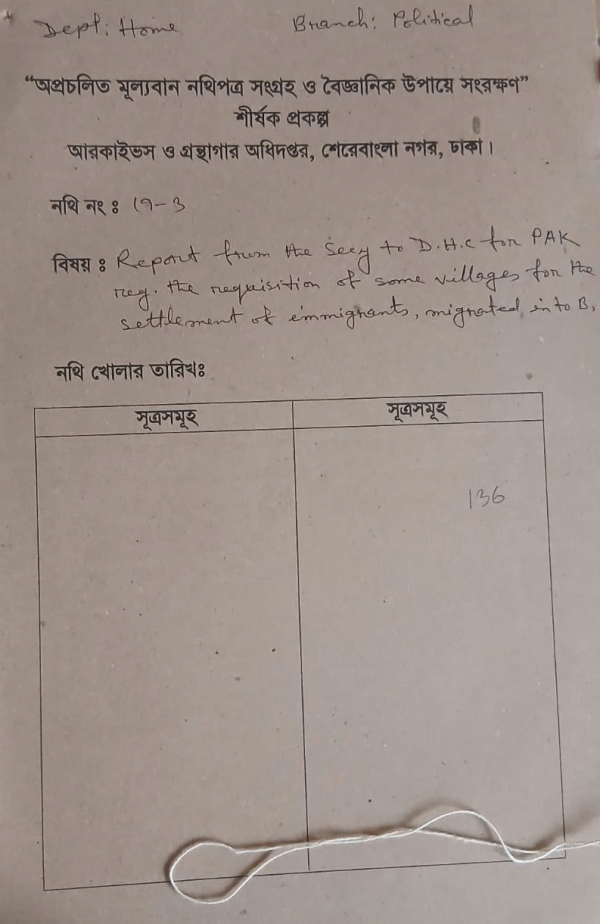 Dept: Home Branch: Political
“অপ্রচলিত মূল্যবান নথিপত্র সংগ্রহ ও বৈজ্ঞানিক উপায়ে সংরক্ষণ”
শীর্ষক প্রকল্প
আরকাইভস ও গ্রন্থাগার অধিদপ্তর, শেরেবাংলা নগর, ঢাকা।
নথি নং ঃ 19-3
বিষয় ঃ Report from the Secy to D.H.C for PAK
reg. the requisition of some villages for the
settlement of immigrants, migrated in to B.
নথি খোলার তারিখঃ
সূত্রসমূহ সূত্রসমূহ
136